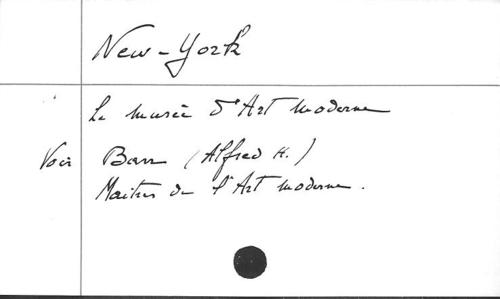 New-York
Le musée d'Art moderne
Voir Barr (Alfred H.)
Maitres de l'Art moderne.